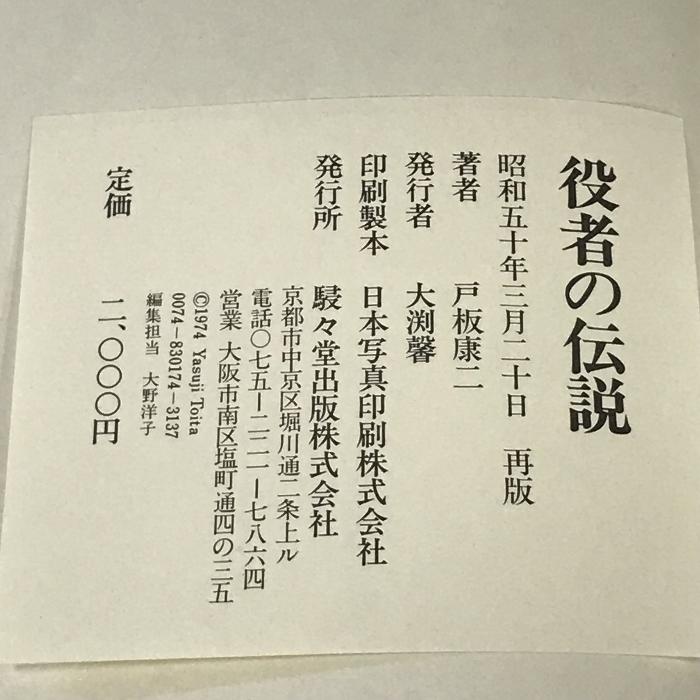 役者の伝説
昭和五十年三月二十日 再版
著者 戸板康二
発行者 大渕馨
印刷製本 日本写真印刷株式会社
発行所 駸々堂出版株式会社
京都市中京区堀川通二条上ル
電話〇七五ー二二一ー七八六四
営業 大阪市南区塩町通四の三五
©1974 Yasuji Toita
0074-830174-3137
編集担当 大野洋子
定価 二、〇〇〇円